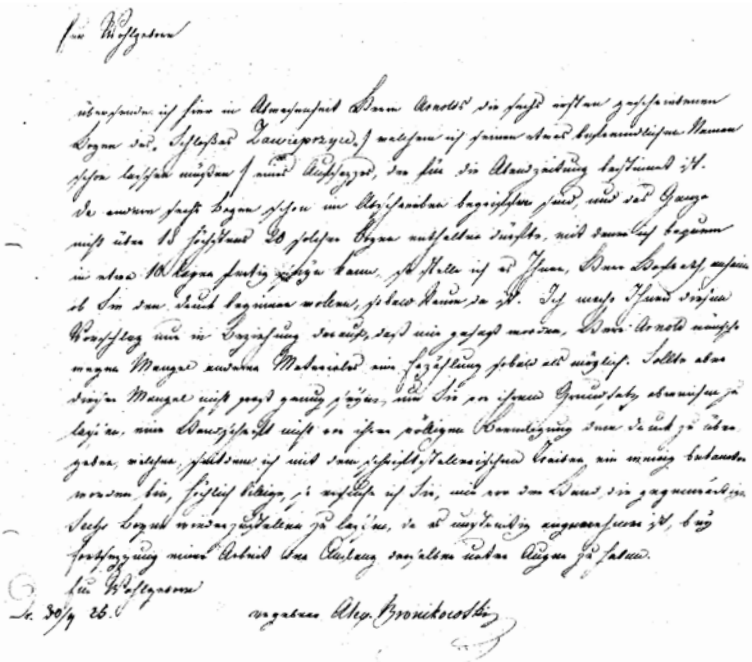 Euer Wohlgeboren
übersende ich hier in Abwesenheit Herrn Arnolds die sechs ersten geschriebenen
Bogen des, Schloßes Zawieprzyce, welchem ich seinen etwas Namen
schon lassen müßen eines Aufsatzes, der für die Abendzeitung bestimmt ist.
Da andere sechs Bogen schon im Abschreiben begriffen sind, und das Ganze
nicht über 18 höchstens 20 solcher Bogen enthalten dürfte, mit denen ich bequem
in etwa 10 Tagen fertig seyn kann, so stelle ich es Ihnen, Herr Hofrath anheim
ob Sie den Druck beginnen wollen, sobald Raum da ist. Ich mache Ihnen diesen
Vorschlag nur in Beziehung darauf, daß mir gesagt worden, Herr Arnold wünsche
wegen Mangel anderen Materiales eine Erzählung sobald als möglich. Sollte aber
dieser Mangel nicht groß genug seyn, um Sie von ihrem Grundsatz abweichen zu
laßen, eine Handschrift nicht vor ihrer völligen Beendigung dem Druck zu über
geben, welchen, seitdem ich mit dem schriftstellerischen Treiben ein wenig bekannter
worden bin, höchlich billige, so ersuche ich Sie, mir vor der Hand die gegenwärtigen
sechs Bogen wieder zustellen zu laßen, da es angenehmer ist, bey
Fortsetzung einer Arbeit den Anfang derselben unter Augen zu haben.
Eur Wohlgeboren
Dr. 30/9 25. ergebener Alex. Bronikowski